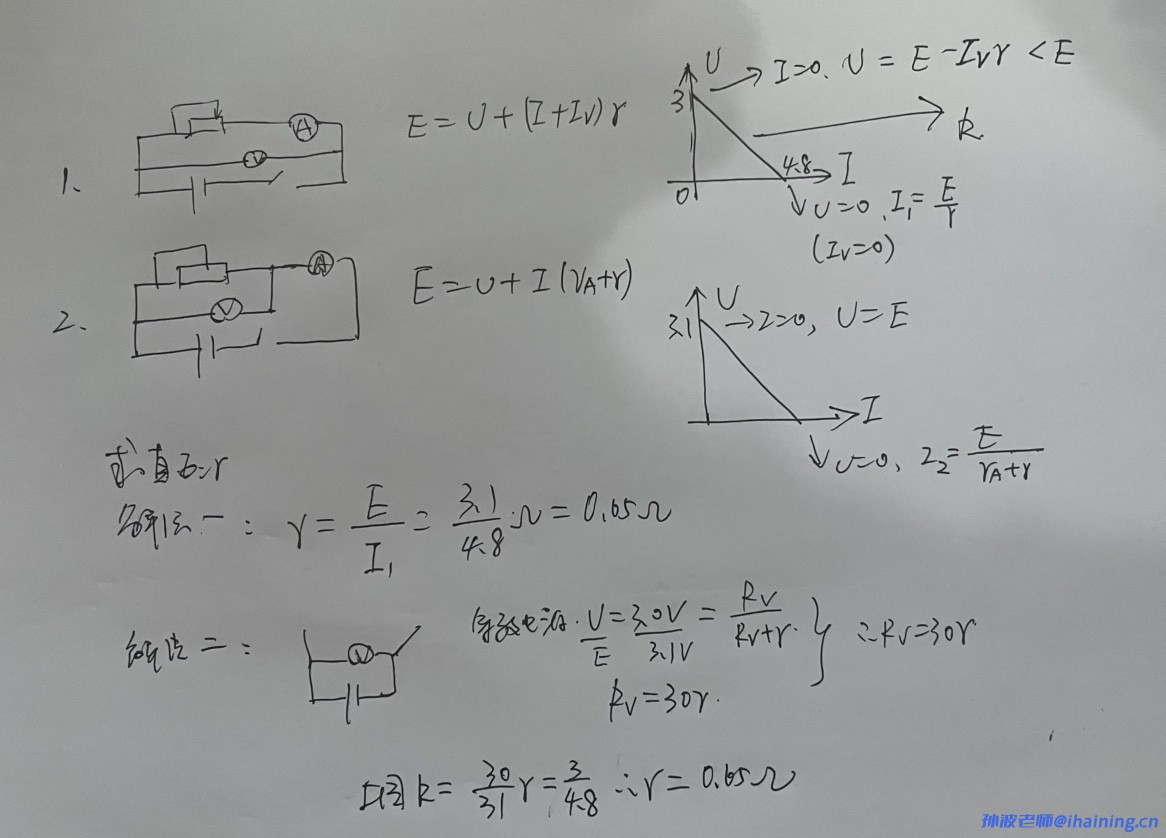 1. A V E = U + (I + Iv) r
U 3 → I=0. U = E - Ivr < E
k
4.8 I
0 ↓ U=0, I₁ = E/r
(Iv=0)
2. A V E = U + I (rA+r)
U 3.1 → I=0, U = E
I
↓ U=0, I₂ = E/(rA+r)
求真正r
解法一: r = E/I₁ = 3.1/4.8 Ω = 0.65Ω
解法二: V 等效电源. U/E = 3.0V/3.1V = Rv/(Rv+r) } ∴Rv=30r
Rv=30r.
k = 30/31 r = 3/4.8 ∴r = 0.65Ω
孙波老师@ihaining.cn